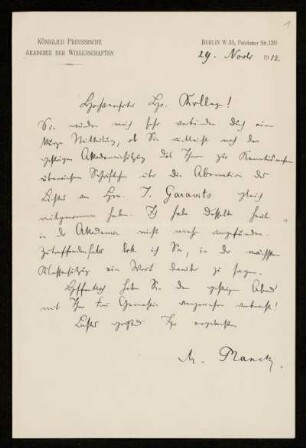 1
KÖNIGLICH PREUSSISCHE
AKADEMIE DER WISSENSCHAFTEN
BERLIN W 35, Potsdamer Str. 120
29. Novb. 1912.
Hochgeehrter Hr. Kollege!
Sie würden mich sehr verbinden durch eine
Mitteilung, ob Sie vielleicht nach der
gestrigen Akademiesitzung das Ihnen zur Kenntnisnahme
Schriftstück über die Aberration des
Lichtes an Hrn. gleich
mitgenommen haben. Ich habe dasselbe heut
in der Akademie nicht mehr vorgefunden.
bitte ich Sie, in der nächsten
Klassensitzung ein Wort darüber zu sagen.
Hoffentlich haben Sie den gestrigen Abend
mit Ihrer Frau Gemahlin angenehm verbracht!
Bestens grüßend Ihr ergebenster
M. Planck.